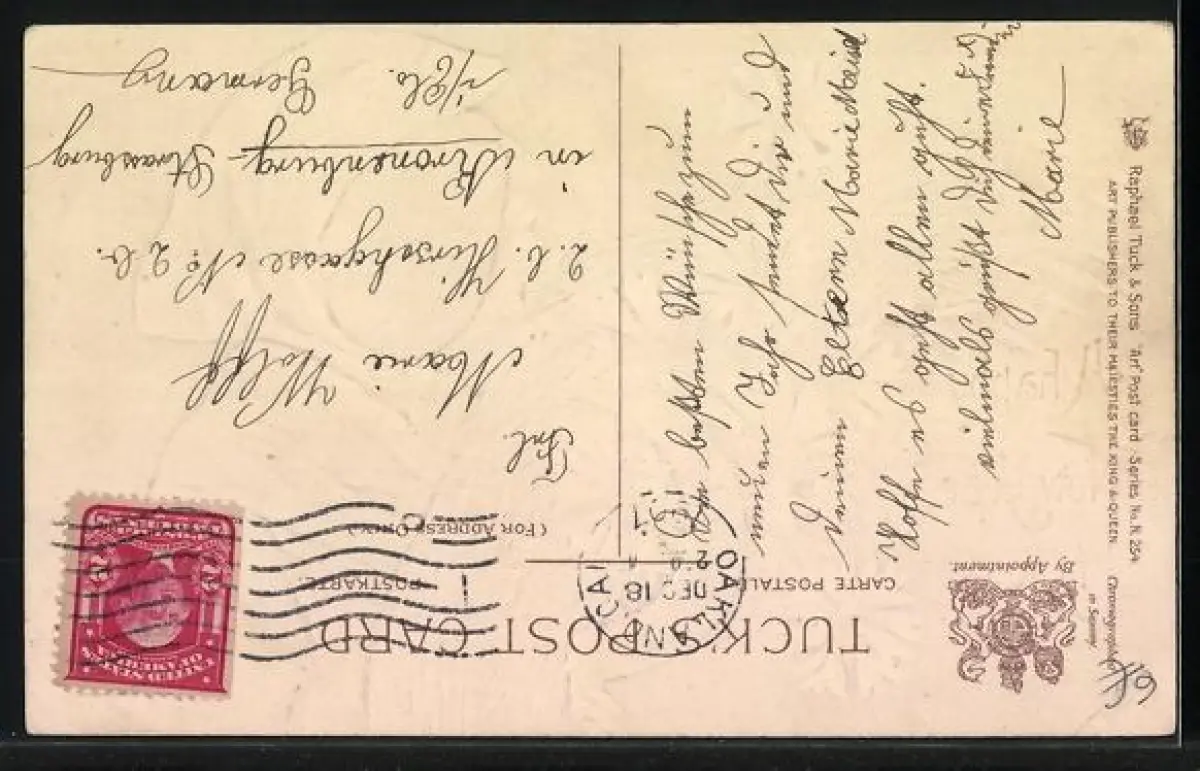 TUCK'S POST CARD
CARTE POSTALE
POSTKARTE
(FOR ADDRESS ONLY)
By Appointment.
OAKLAND CAL
DEC 18
UNITED STATES OF AMERICA
2 2
Frl.
Marie Wolff
2. b. Hirschgasse No 2 b.
in Kronenburg-Strassburg
i/Els.
Germany
Die besten Wünsche zum
neuen Jahr sendet dir und
deinen Eltern Marie Maier
Hoffe es geht allen gut.
vielmals grüßt dich
Marie
Raphael Tuck & Sons "Art" Post card Series No. N. 254
ART PUBLISHERS TO THEIR MAJESTIES THE KING & QUEEN.
Chromographed in Saxony